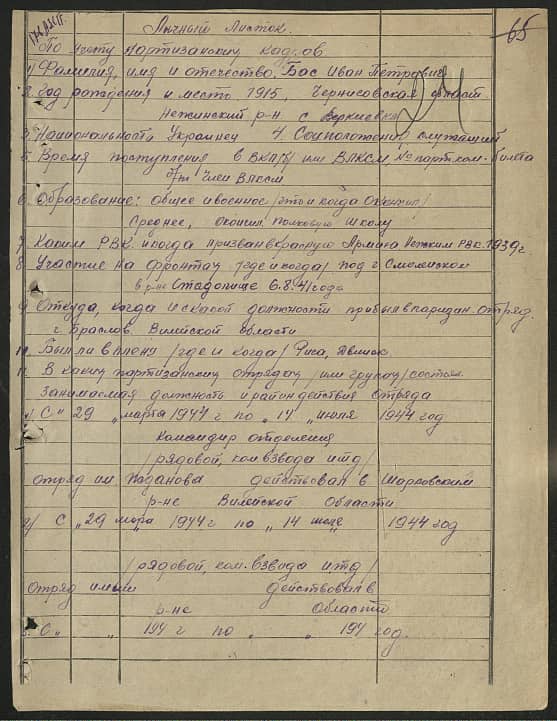 65
Личный Листок.
По учету партизанских кадров
1) Фамилия, имя и отчество. Бас Иван Петрович
2. Год рождения и место 1915, Черниговская област
Нежинский р-н. с Веркиевка
3. Национальность Украинец 4. Соцположение служащий
5. Время поступления в ВКП/б/ или ВЛКСМ № парт.ком. билета
б/п член ВЛКСМ
6. Образование: общее и военное /что и когда окончил/
Среднее, окончил полковую школу
7. Каким РВК и когда призван в красную Армию Нежским РВК. 1939 г
8. Участие на фронтах /где и когда/ под г. Смоленском
в р-не Стадонище 6.8.41 года
9. Откуда, когда и с какой должности прибыл в паризан. отряд.
г. Браслов. Вилейской области
10. Был ли в плену /где и когда/ Рига, Двинск.
11. В каких партизанских отрядах /или групах/ состоял
занимаемая должность и район действия отряда
1/ С " 29 " марта 1944 г по " 14 " июля 1944 год
командир отделения
/рядовой, ком. взвода итд/
отряд им Жданова действовал в Шарковским
р-не Вилейской Области
2/ С " 29 марта 1944 г по " 14 июля 1944 год
/рядовой, ком. взвода итд/
Отряд имени действовал в
р-не Области
С " " 194 г по " " 194 год.